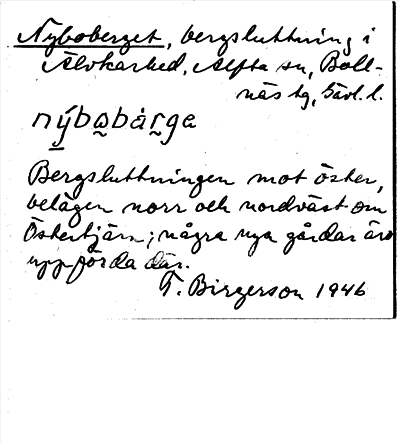 Nyboberget, bergsluttning i
Älvkarhed, Alfta sn, Boll-
näs tg, Gävl. l.
nýbωbärgε
Bergsluttningen mot öster,
belägen norr och nordväst om
Östertjärn; några nya gårdar äro
uppförda där.
T. Birgerson 1946